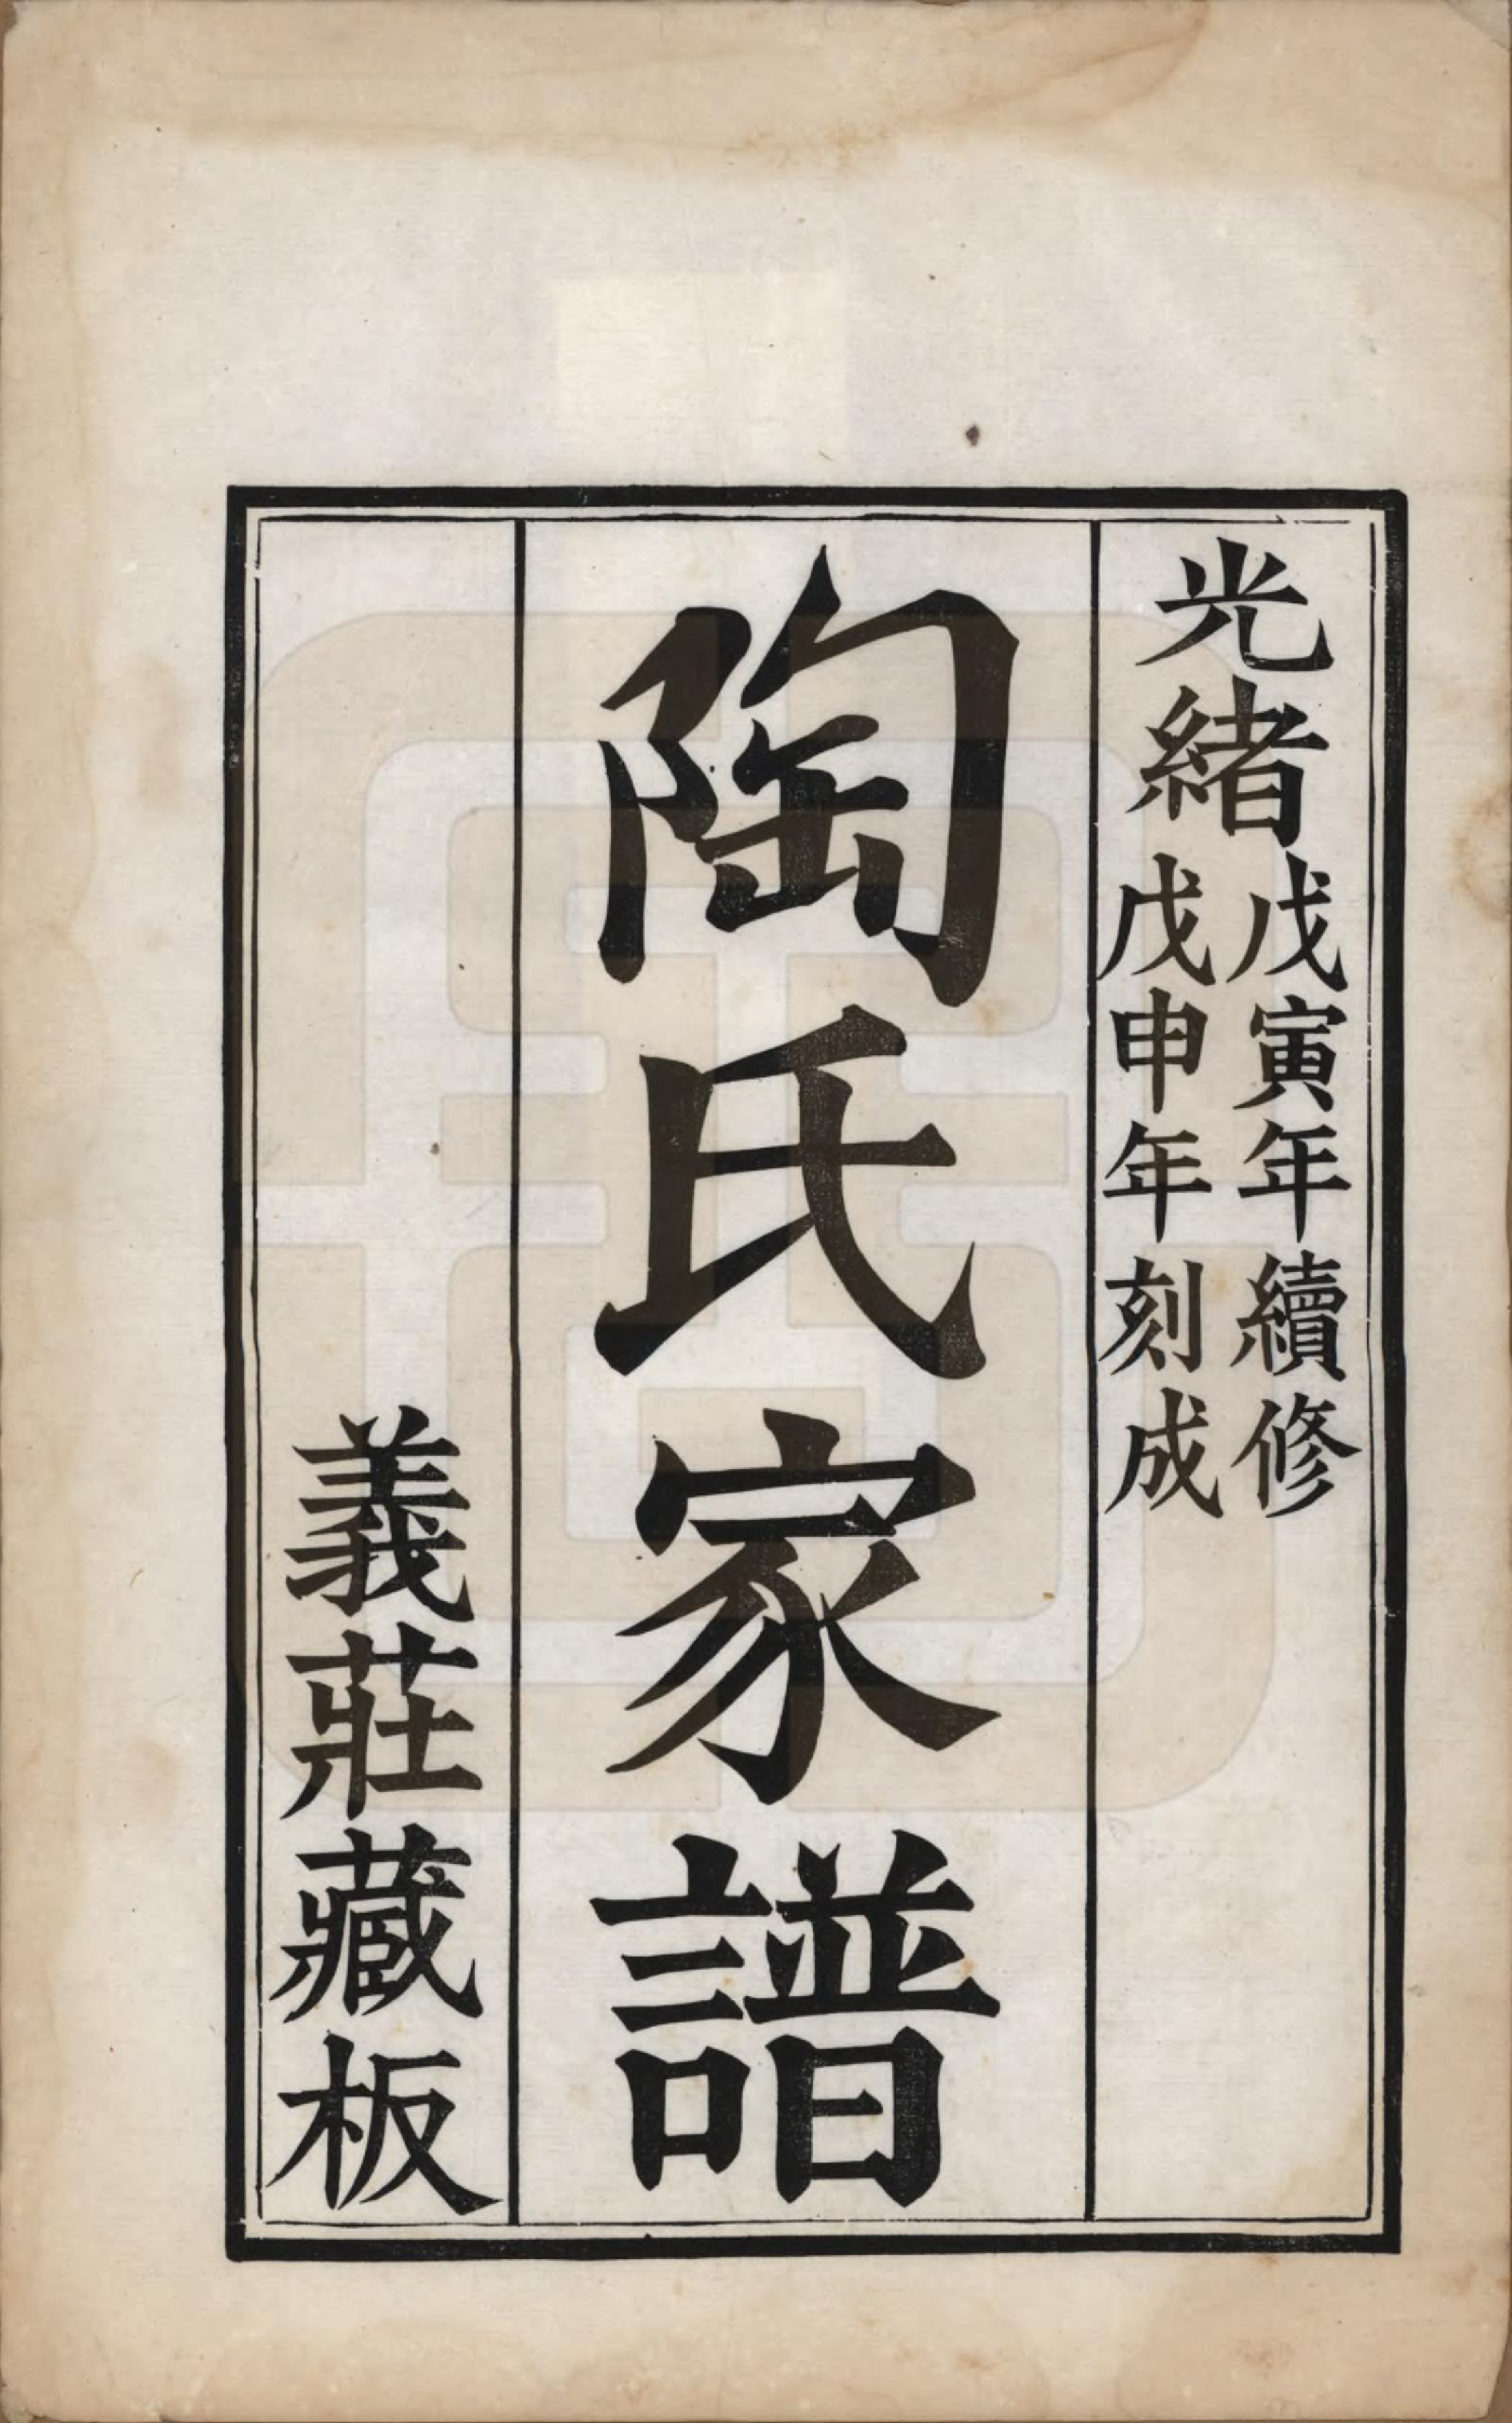 光緒
戊寅年續修
戊申年刻成
陶氏家譜
義莊藏板